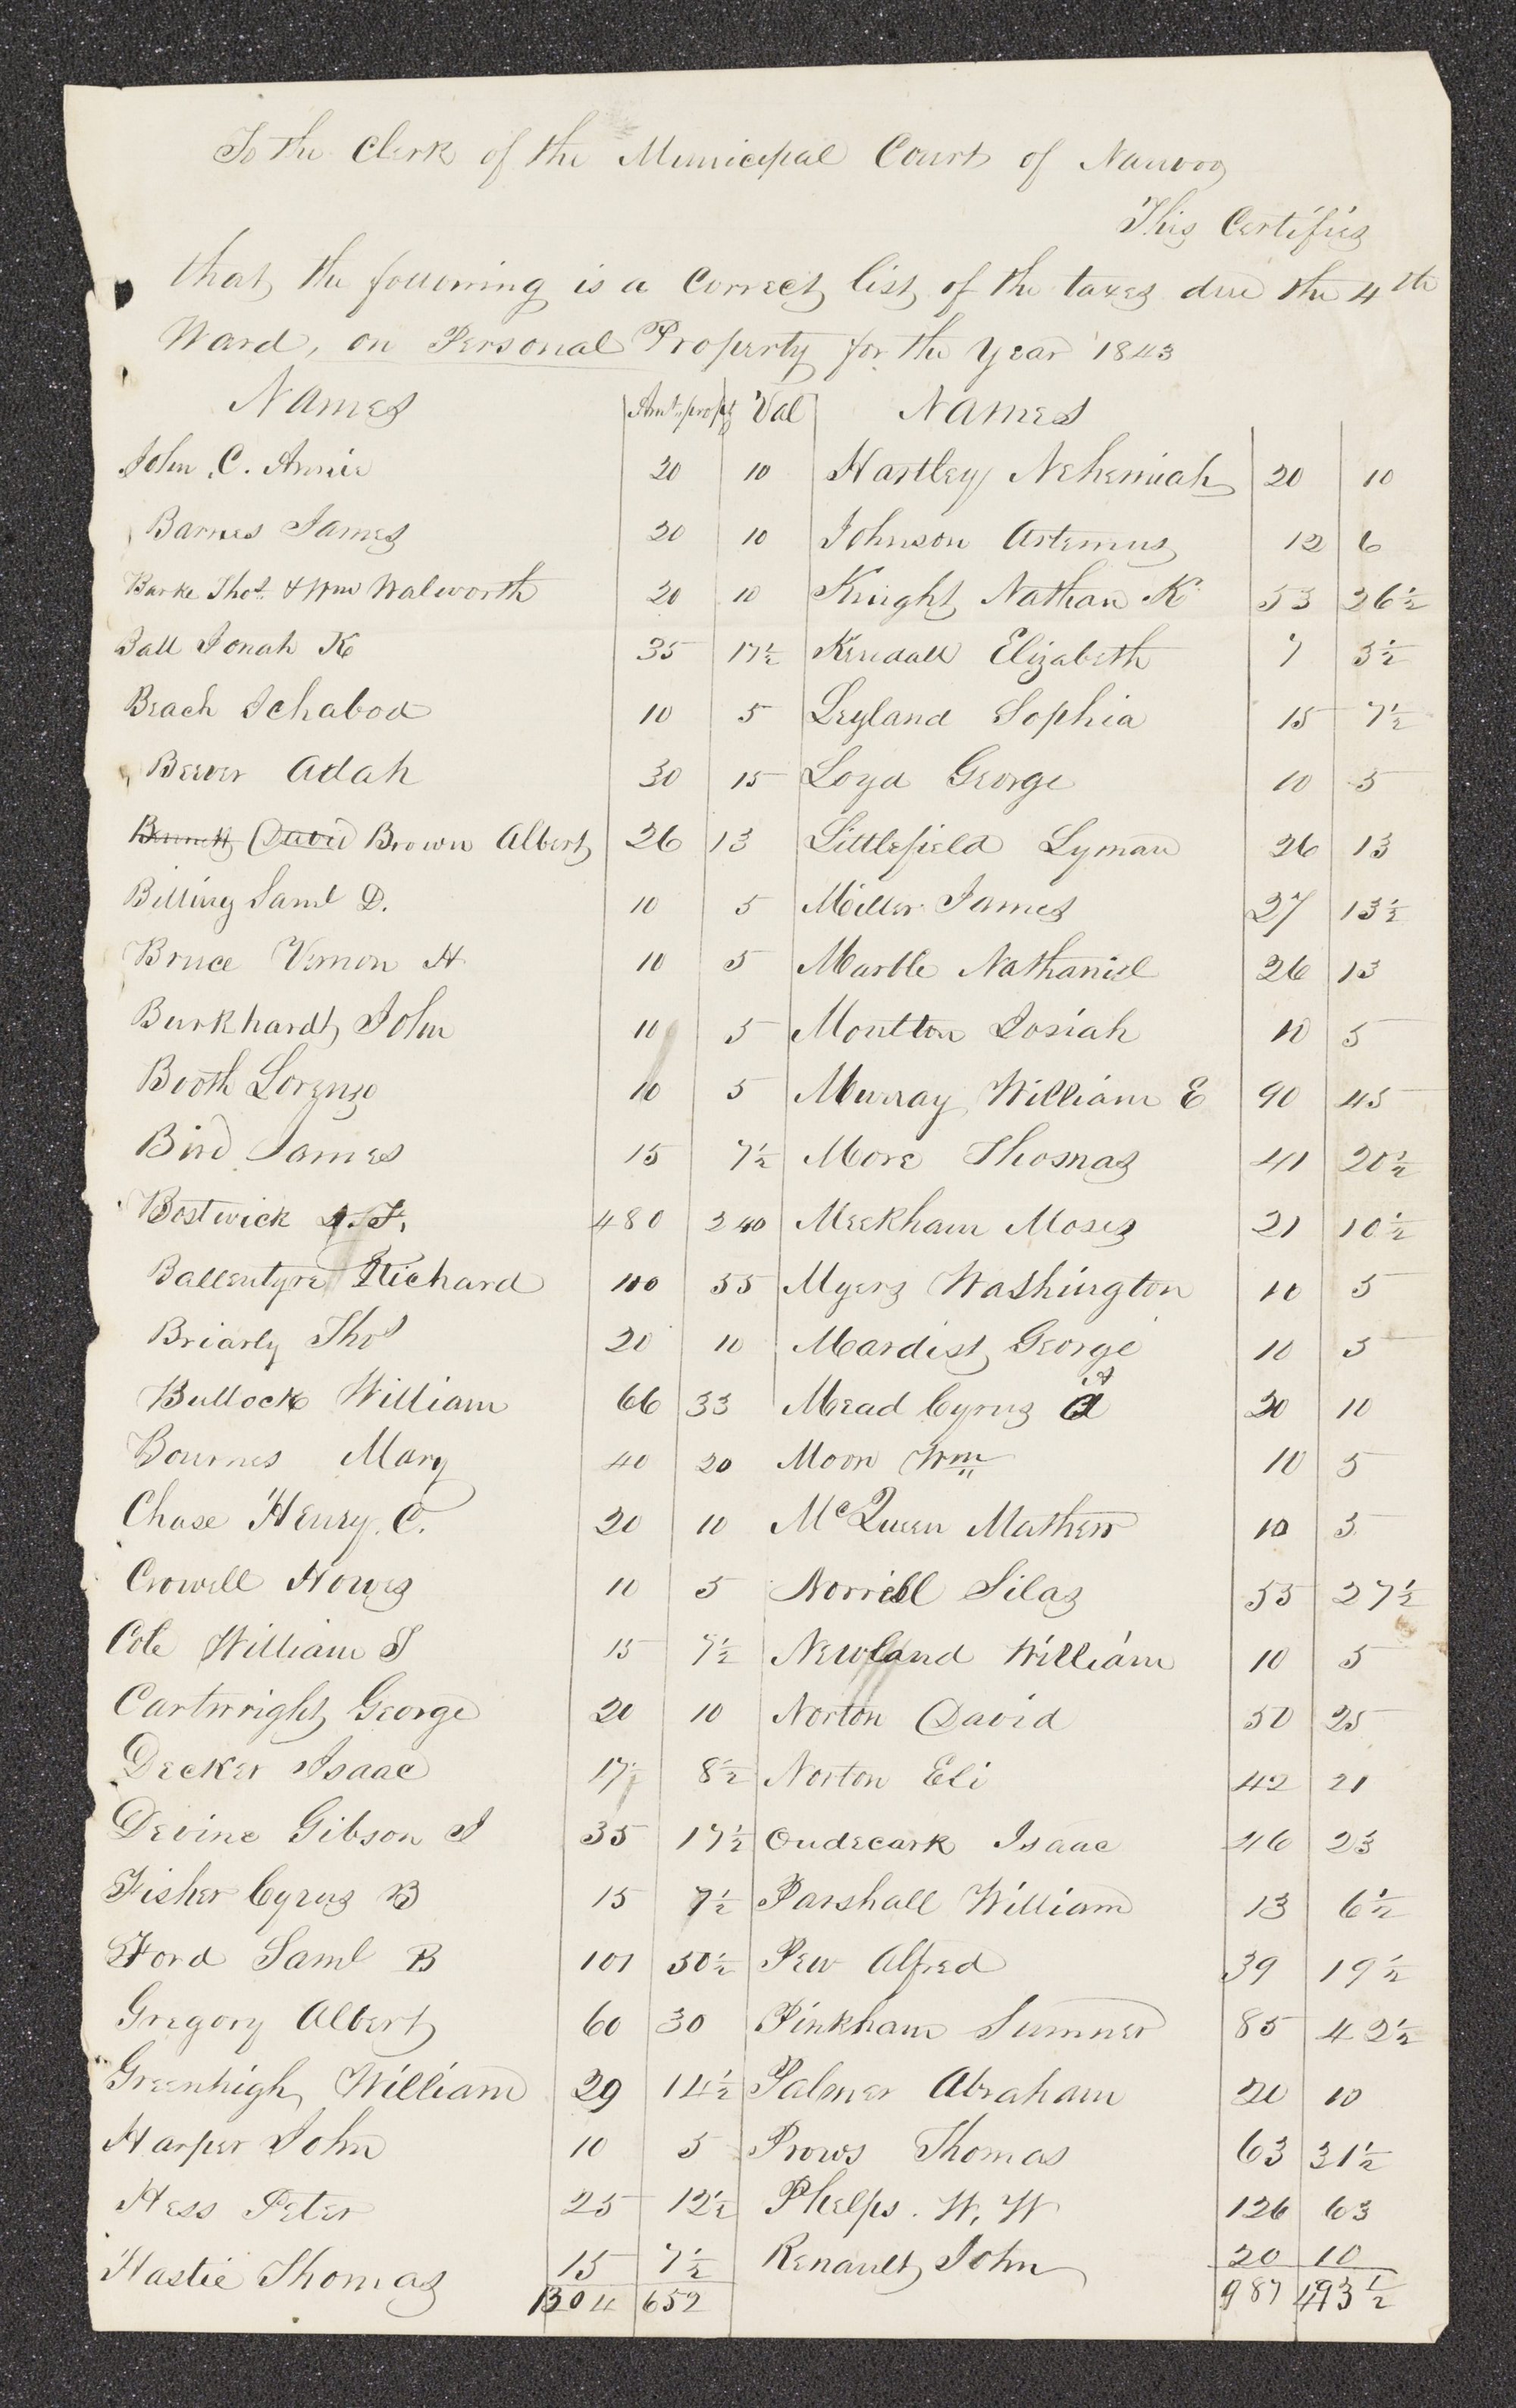 To the Clerk of the Municipal Court of Nauvoo
This Certifies
that the following is a Correct list of the taxes due the 4th
Ward, on Personal Property for the Year 1843
Names Amt. propy Val Names
John C. Annie 20 10 Hartley Nehemiah 20 10
Barnes James 20 10 Johnson Artemus 12 6
Burke Thos. & Wm Walworth 20 10 Knight Nathan K 53 26½
Ball Jonah K 35 17½ Kendall Elizabeth 7 3½
Beach Ichabod 10 5 Leyland Sophia 15 7½
Beever Adah 30 15 Loyd George 10 5
Bennett David Brown Albert 26 13 Littlefield Lyman 26 13
Billing Saml D. 10 5 Miller James 27 13½
Bruce Vernon H 10 5 Marble Nathaniel 26 13
Burkhardt John 10 5 Moulton Josiah 10 5
Booth Lorenzo 10 5 Murray William E 90 45
Bird James 15 7½ More Thomas 41 20½
Bostwick 480 240 Meekham Moses 21 10½
Ballentyre Richard 100 55 Myers Washington 10 5
Briarly Thos 20 10 Mardist George 10 5
Bullock William 66 33 Mead Cyrus A 20 10
Bournes Mary 40 20 Moon Wm 10 5
Chase Henry C. 20 10 McQueen Mathew 10 5
Crowell Howes 10 5 Norriell Silas 55 27½
Cole William J 15 7½ Newland William 10 5
Cartwright George 20 10 Norton David 50 25
Decker Isaac 17 8½ Norton Eli 42 21
Devine Gibson J 35 17½ Oudecark Isaac 46 23
Fisher Cyrus B 15 7½ Parshall William 13 6½
Ford Saml B 101 50½ Pew Alfred 39 19½
Gregory Albert 60 30 Pinkham Sumner 85 42½
Greenhigh William 29 14½ Palmer Abraham 20 10
Harper John 10 5 Prows Thomas 63 31½
Hess Peter 25 12½ Phelps. W. W 126 63
Hastie Thomas 15 7½ Renault John 20 10
1304 652 987 493½